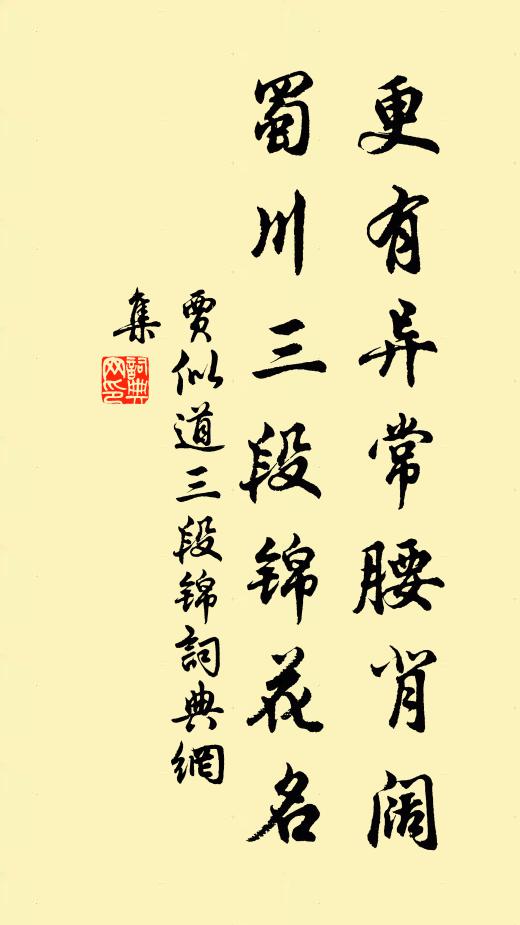 更有异常腰背阔
蜀川三段锦花名
贾似道三段锦詞典網
集
詞典
网印